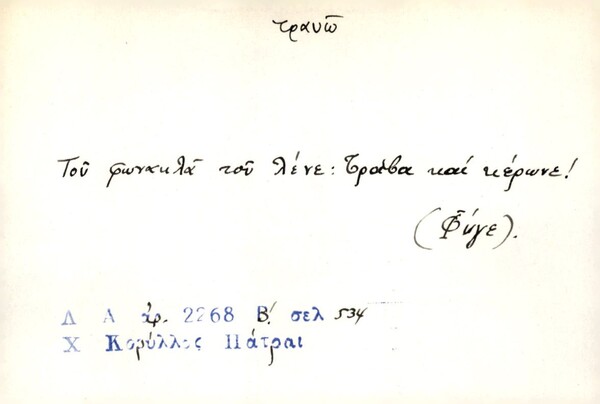 τραυῶ
Τοῦ φωνακλᾶ τοῦ λένε: Τράβα καί κέρωνε!
(Φύγε).
Λ Α ἀρ. 2268 Β΄. σελ 534
Χ Κορύλλος Πάτραι